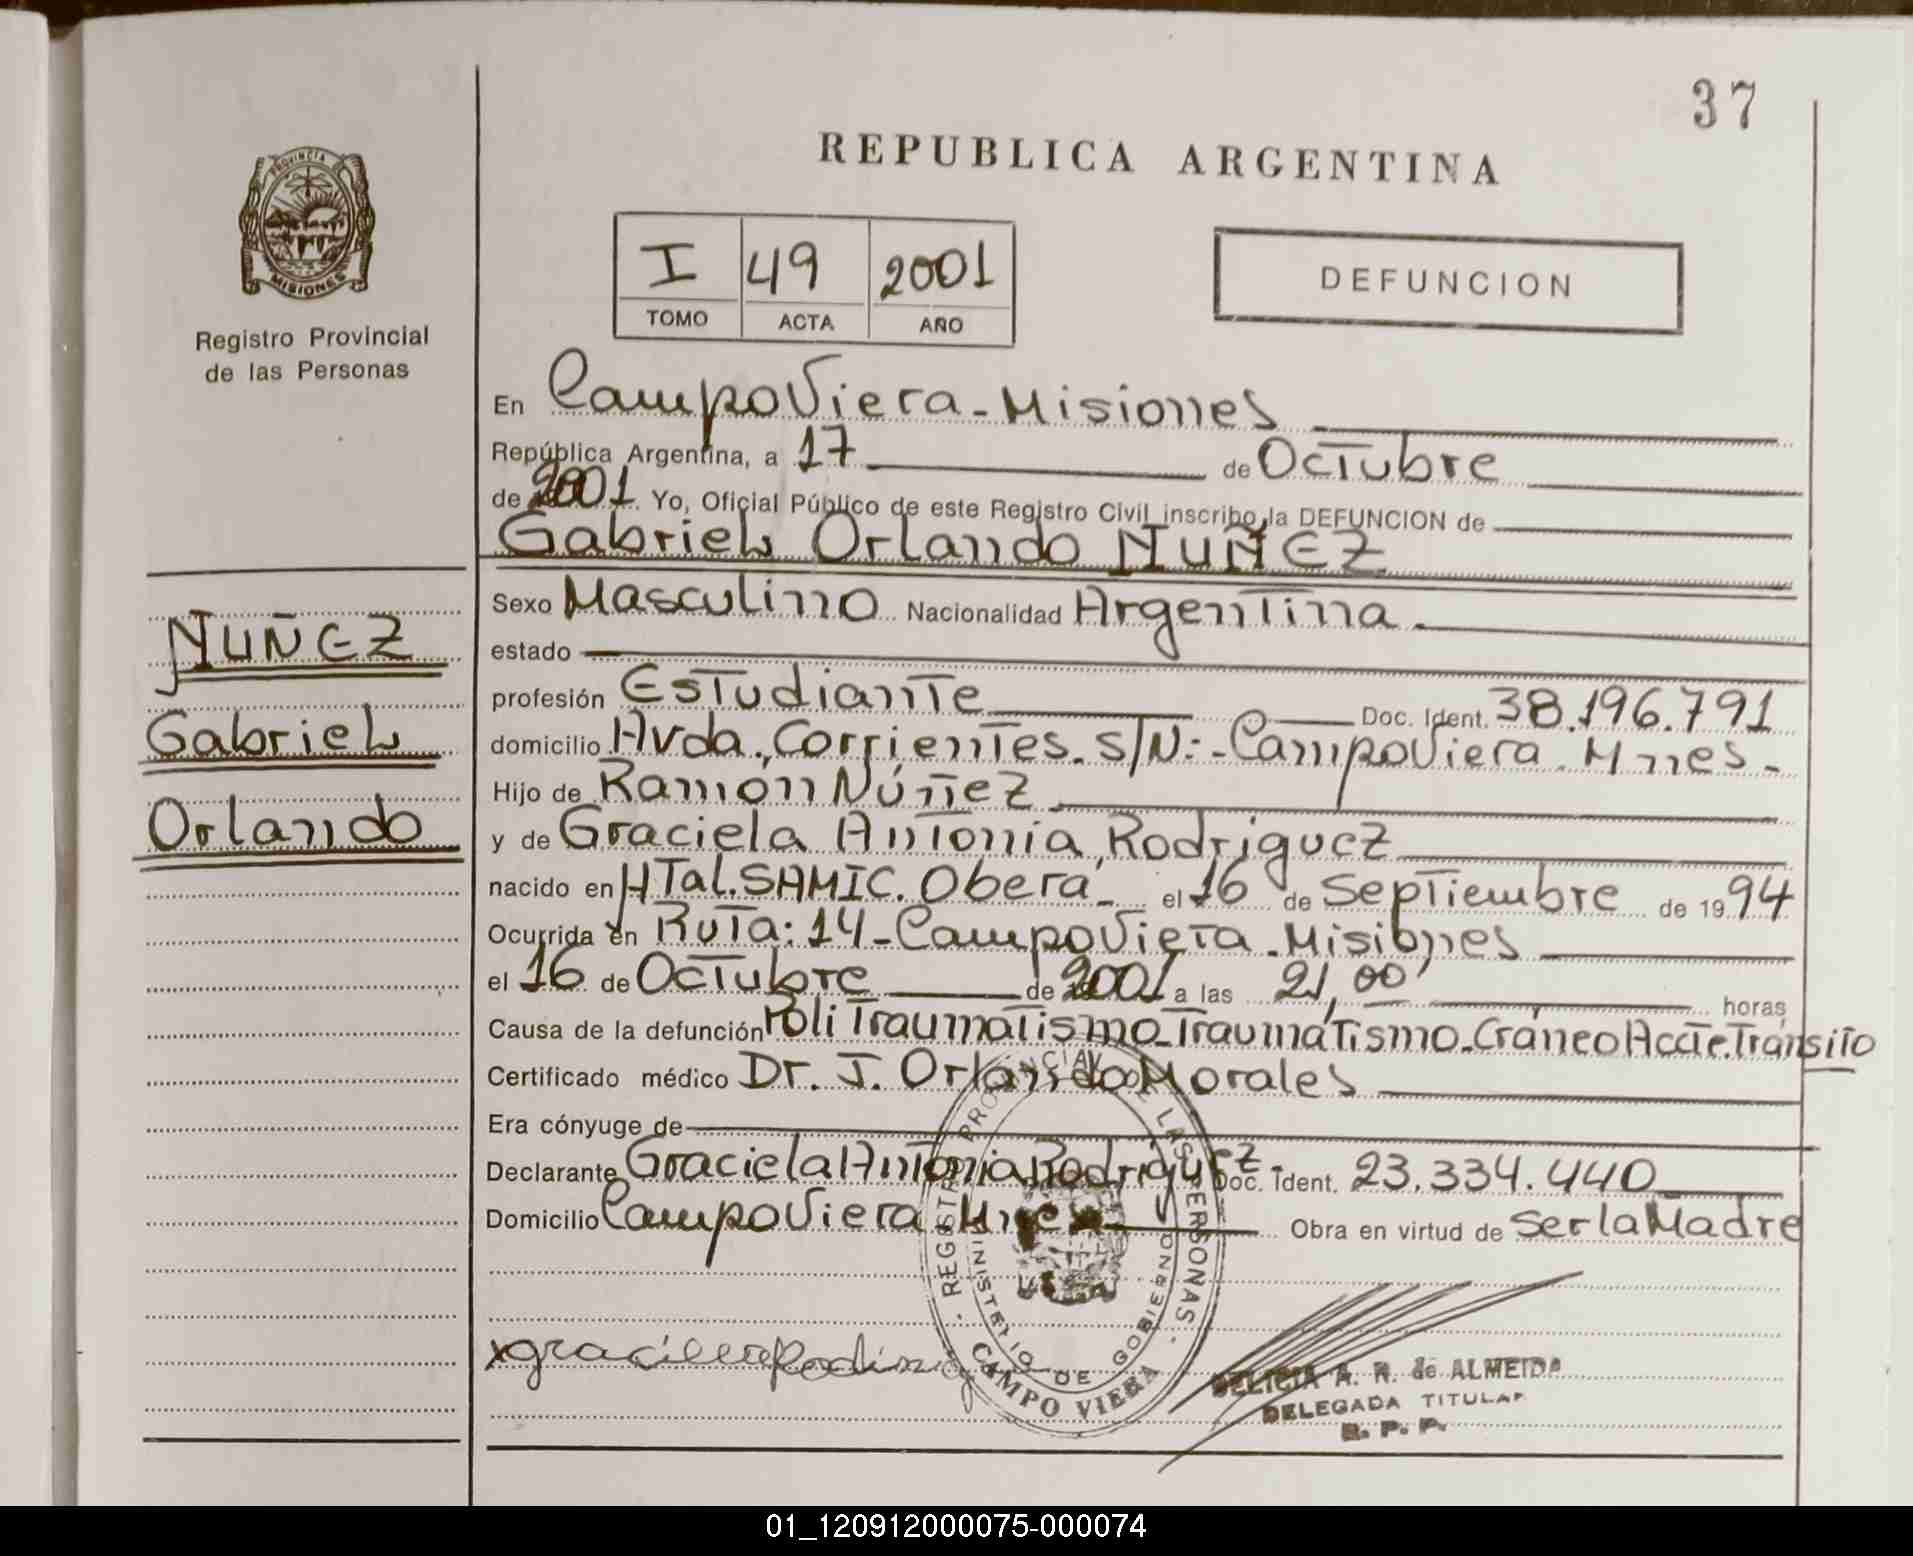 37
REPUBLICA ARGENTINA
PROVINCIA
MISIONES
Registro Provincial
de las Personas
I 49 2001
TOMO ACTA AÑO
DEFUNCION
En Campo Viera - Misiones
República Argentina, a 17 de Octubre
de 2001 Yo, Oficial Público de este Registro Civil inscribo la DEFUNCION de
Gabriel Orlando NUÑEZ
NUÑEZ
Gabriel
Orlando
Sexo Masculino Nacionalidad Argentina.
estado
profesión Estudiante Doc. Ident. 38.196.791
domicilio Avda. Corrientes. S/N: - Campo Viera. Mnes -
Hijo de Ramón Núñez
y de Graciela Antonia, Rodriguez
nacido en HTal. SAMIC. Oberá - el 16 de Septiembre de 1994
Ocurrida en Ruta: 14 - Campo Viera - Misiones
el 16 de Octubre de 2001 a las 21,00 horas
Causa de la defunción Politraumatismo - Traumatismo - Cráneo Accte. Tránsito
Certificado médico Dr. J. Orlando Morales
Era cónyuge de
Declarante Graciela Antonia Rodriguez - Doc. Ident. 23.334.440
Domicilio Campo Viera - Mnes Obra en virtud de ser la Madre
REGISTRO PROVINCIAL DE LAS PERSONAS
MINISTERIO DE GOBIERNO
CAMPO VIERA
DELICIA A. R. de ALMEIDA
DELEGADA TITULAR
R. P. P.
01_120912000075-000074